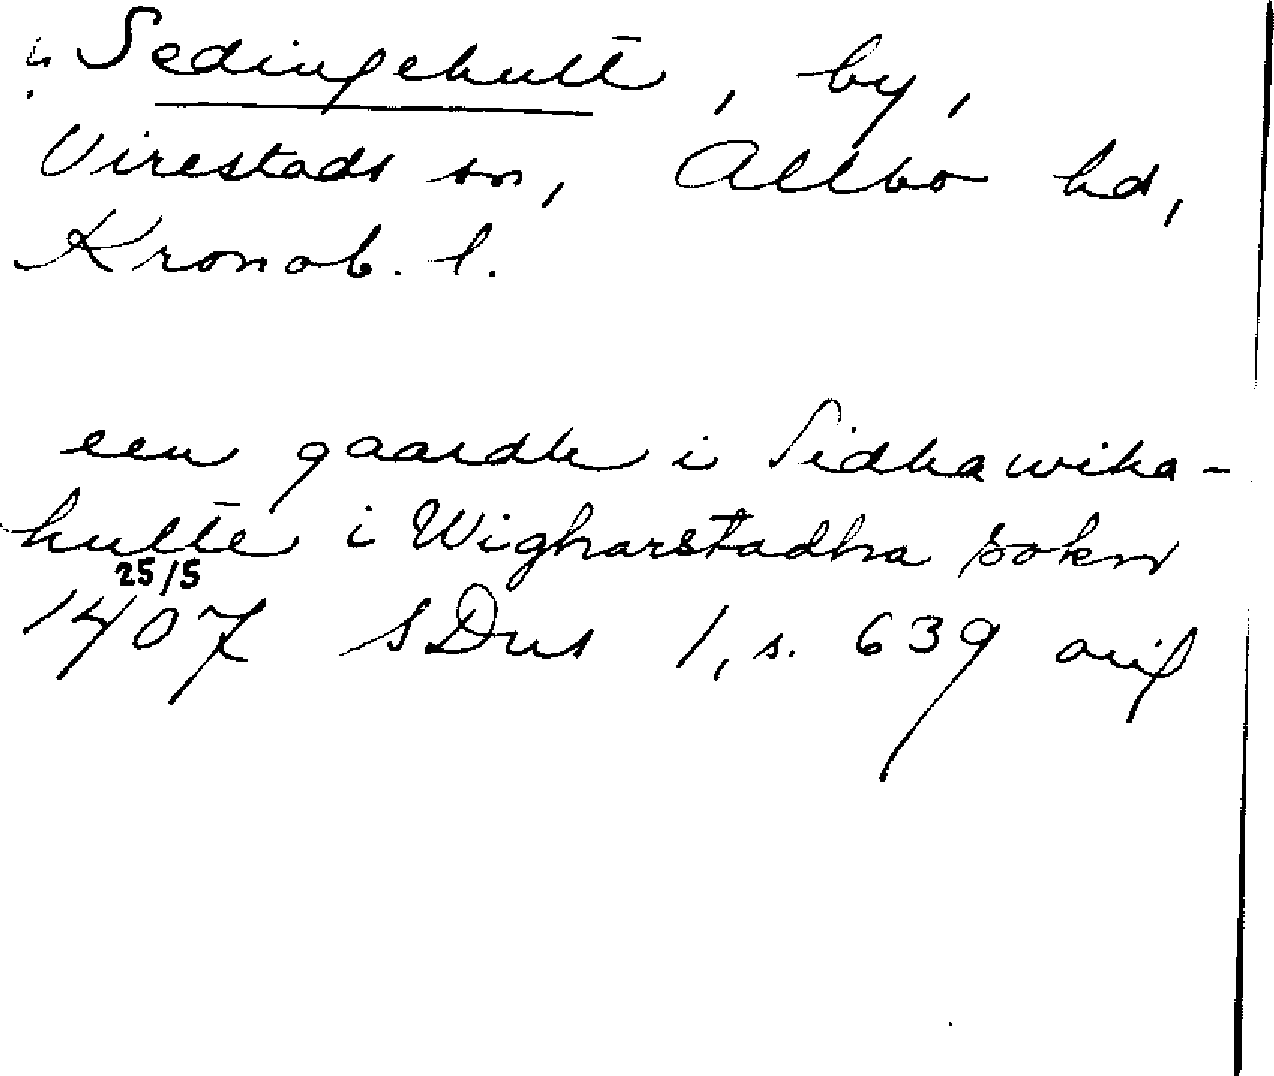 Sedingehult, by,
Virestads sn, Allbo hd,
Kronob. l.
een gaardh i Sidhawika-
hulte i Wigharstadha sokn
25/5
1407 SDns 1, s. 639 orig